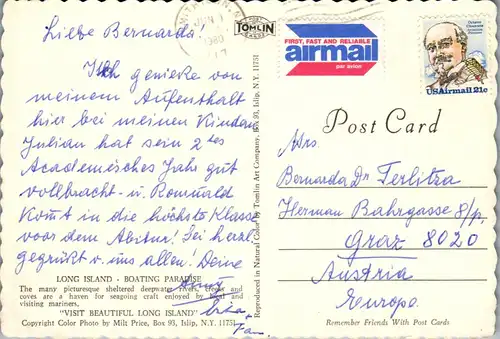 Liebe Bernarda!
Ich genieße von
meinem Aufenthalt
hier bei meinen Kindern
Julian hat sein 2tes
Academisches Jahr gut
vollbracht - u. Romuald
Komt in die höchste Klasse
voor dem Abitur! Sei herzl.
gegrüßt v. uns allen! Deine
LONG ISLAND - BOATING PARADISE
The many picturesque sheltered deepwater rivers, creeks and
coves are a haven for seagoing craft enjoyed by local and
visiting mariners.
"VISIT BEAUTIFUL LONG ISLAND"
Copyright Color Photo by Milt Price, Box 93, Islip, N.Y. 11751
Reproduced in Natural Color by Tomlin Art Company, Box 93, Islip, N.Y. 11751
1980
TOMLIN
FIRST, FAST AND RELIABLE
airmail
par avion
Octave
Chanute
USAirmail 21c
Post Card
Mrs.
Bernarda Dr Terlitza
Herman Bahrgasse 8/p.
Graz 8020
Austria
Europe.
Remember Friends With Post Cards